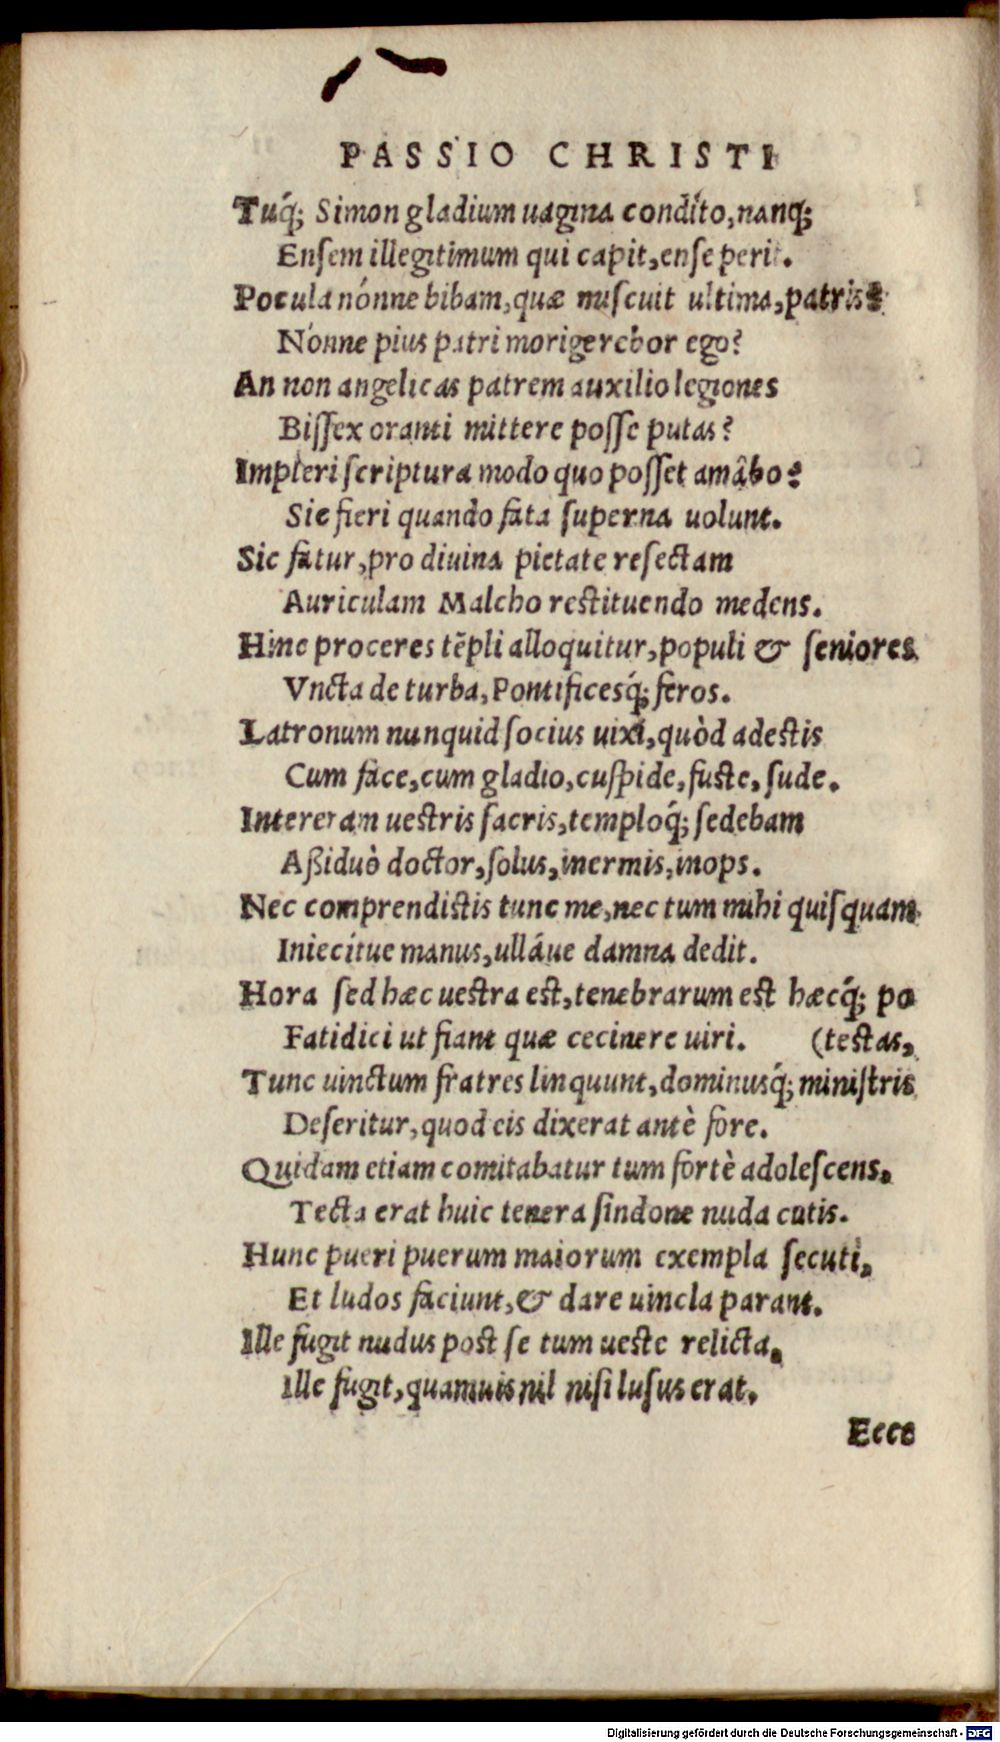 PASSIO CHRISTI
Tuq́; Simon gladium uagina condito, nanq;
Ensem illegitimum qui capit, ense perit.
Pocula nónne bibam, quæ miscuit ultima, patris?
Nónne pius patri morigerebor ego?
An non angelicas patrem auxilio legiones
Bissex oranti mittere posse putas?
Impleri scriptura modo quo posset amâbo?
Sic fieri quando fata superna uolunt.
Sic fatur, pro diuina pietate resectam
Auriculam Malcho restituendo medens.
Hinc proceres tẽpli alloquitur, populi & seniores
Vncta de turba, Pontificesq́; feros.
Latronum nunquid socius uixi, quòd adestis
Cum face, cum gladio, cuspide, fuste, sude.
Intereram uestris sacris, temploq́; sedebam
Aßiduò doctor, solus, inermis, inops.
Nec comprendistis tunc me, nec tum mihi quisquam
Iniecítue manus, ulláue damna dedit.
Hora sed hæc uestra est, tenebrarum est hæcq́; po
Fatidici ut fiant quæ cecinere uiri. (testas,
Tunc uinctum fratres linquunt, dominusq́; ministris
Deseritur, quod eis dixerat antè fore.
Quidam etiam comitabatur tum fortè adolescens,
Tecta erat huic tenera sindone nuda cutis.
Hunc pueri puerum maiorum exempla secuti,
Et ludos faciunt, & dare uincla parant.
Ille fugit nudus post se tum ueste relicta,
Ille fugit, quamuis nil nisi lusus erat.
Ecce
Digitalisierung gefördert durch die Deutsche Forschungsgemeinschaft - DFG